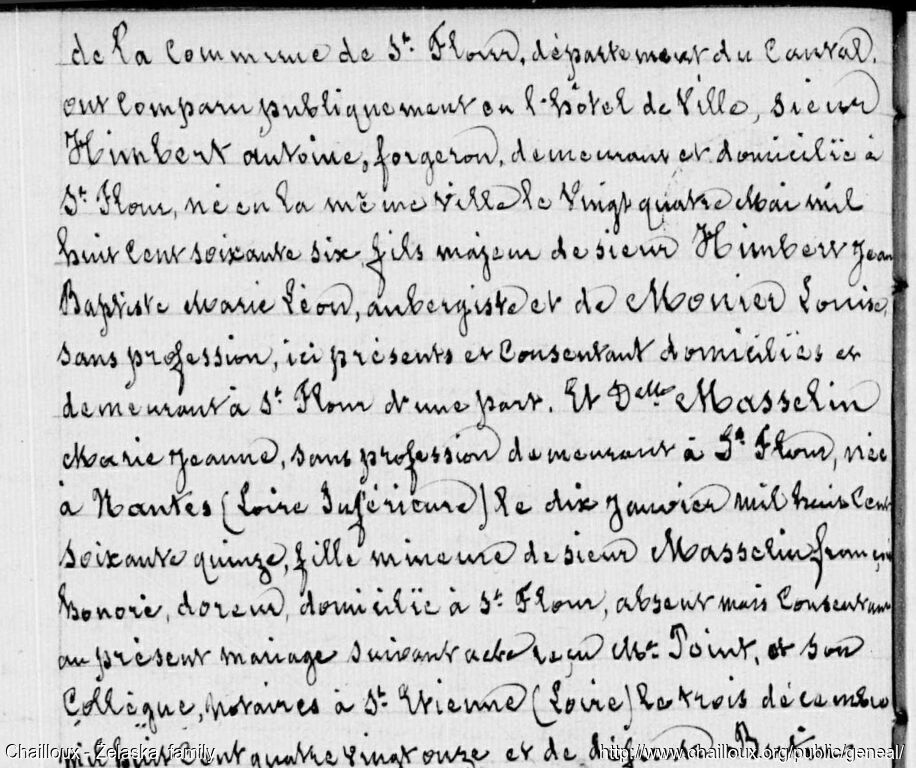 de la Commune de St Flour, département du Cantal.
ont Comparu publiquement en l'hôtel de Ville, sieur
Himbert antoine, forgeron, demeurant et domicilïé à
St Flour, né en la même ville le Vingt quatre Mai mil
huit Cent soixante six, fils majeur de sieur Himbert Jean
Baptiste Marie Léon, aubergiste et de Monier Louise,
sans profession, ici présents et Consentant domicilïés et
demeurant à St Flour d'une part. Et Delle Masselin
Marie Jeanne, sans profession demeurant à St Flour, née
à Nantes (Loire Inférieure) le dix Janvier mil huit Cent
soixante quinze, fille mineure de sieur Masselin françois
honoré, doreur, domicilïé à St Flour, absent mais Consentant
au présent mariage suivant acte reçu Me Point, et son
Collègue, Notaires à St Etienne (Loire) le trois décembre
mil huit Cent quatre vingt onze et de
Chailloux - Zelaska family
http://www.chailloux.org/public/geneal/